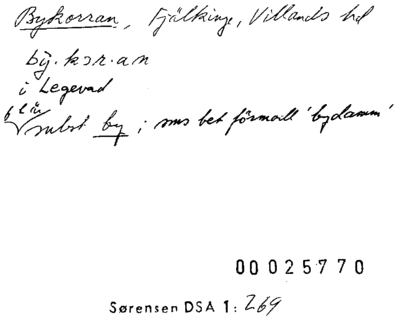 Bykorran, Fjälkinge, Villands hd
bỳ.kɔr.an
i Legevad
subst by i sms bet förmodl 'bydamm'
00025770
Sørensen DSA 1: 269